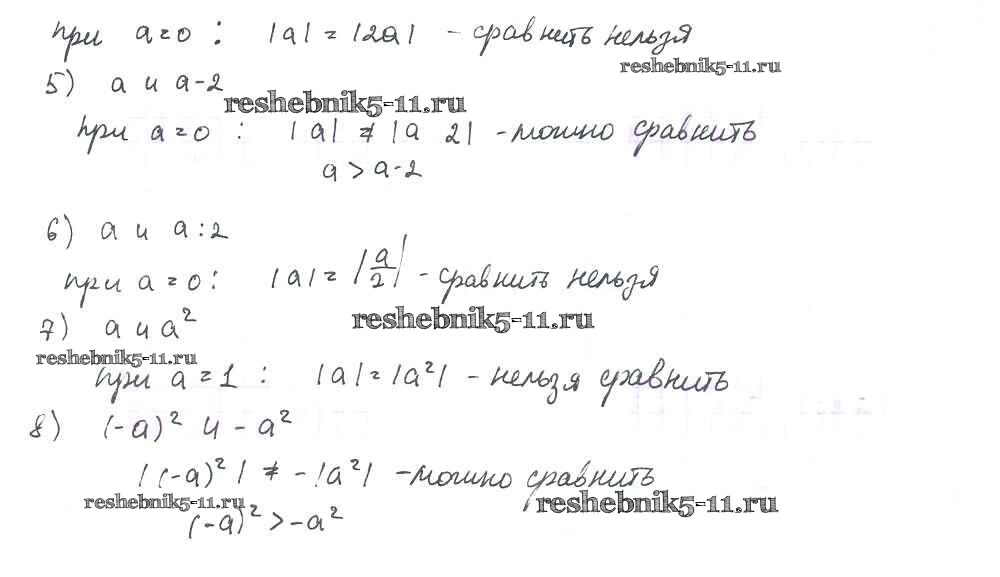 при a=0 : |a| = |2a| - сравнить нельзя
reshebnik5-11.ru
5) a и a-2
reshebnik5-11.ru
при a=0 : |a| ≠ |a 2| - можно сравнить
a > a-2
6) a и a:2
при a=0 : |a| = |a/2| - сравнить нельзя
reshebnik5-11.ru
7) a и a²
reshebnik5-11.ru
при a=1 : |a| = |a²| - нельзя сравнить
8) (-a)² и -a²
|(-a)²| ≠ -|a²| - можно сравнить
reshebnik5-11.ru reshebnik5-11.ru
(-a)² > -a²